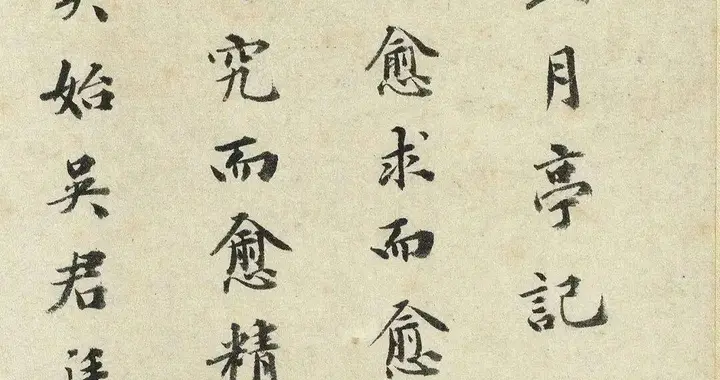 月亭記
愈求而愈
究而愈精
始吳君